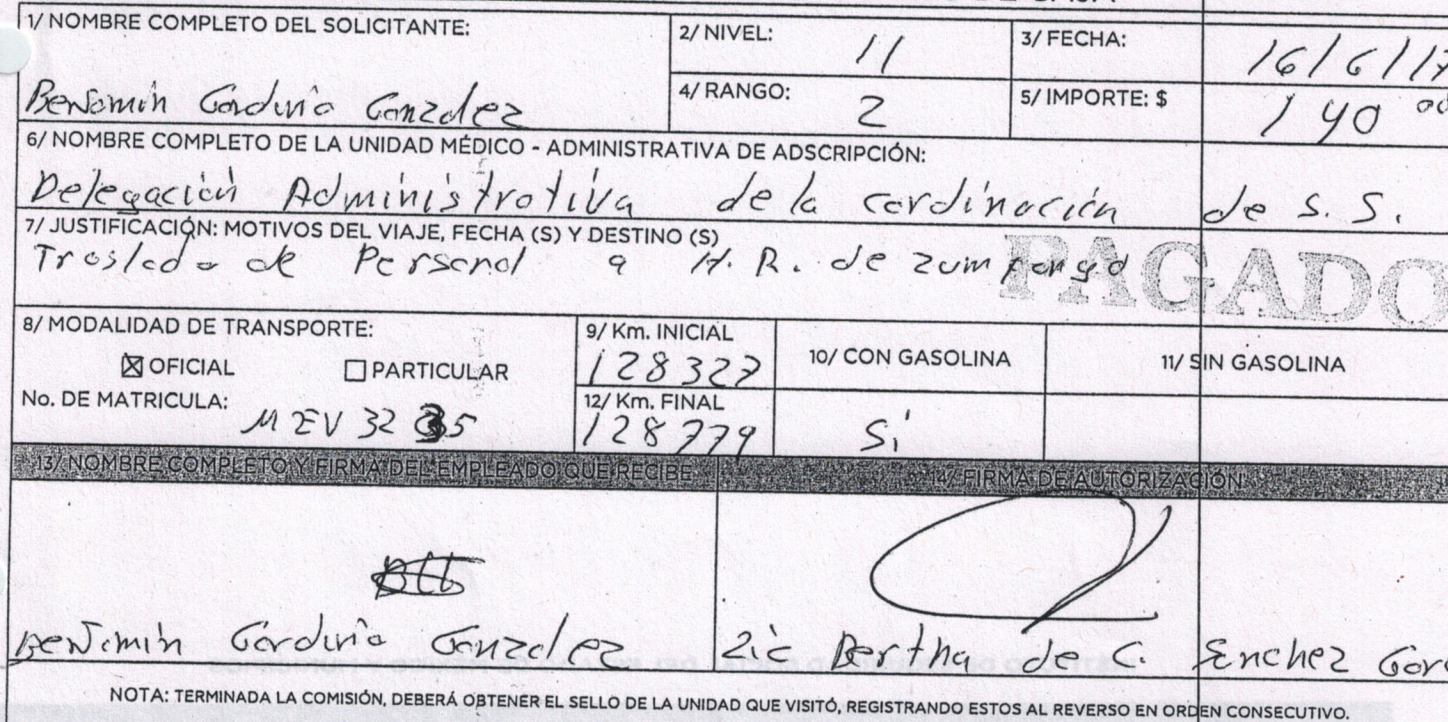 1/ NOMBRE COMPLETO DEL SOLICITANTE:
Benjamin Garduño Gonzalez
2/ NIVEL: 11
3/ FECHA: 16/6/17
4/ RANGO: 2
5/ IMPORTE: $ 140 00
6/ NOMBRE COMPLETO DE LA UNIDAD MÉDICO - ADMINISTRATIVA DE ADSCRIPCIÓN:
Delegación Administrativa de la cordinación de S. S.
7/ JUSTIFICACIÓN: MOTIVOS DEL VIAJE, FECHA (S) Y DESTINO (S)
Traslado de Personal a H. R. de zumpango
PAGADO
8/ MODALIDAD DE TRANSPORTE:
☒ OFICIAL ☐ PARTICULAR
No. DE MATRICULA: MEV 32 35
9/ Km. INICIAL
128327
12/ Km. FINAL
128779
10/ CON GASOLINA
Si
11/ SIN GASOLINA
13/ NOMBRE COMPLETO Y FIRMA DEL EMPLEADO QUE RECIBE
14/ FIRMA DE AUTORIZACIÓN
Benjamin Garduño Gonzalez
Lic Bertha de C. Sanchez
NOTA: TERMINADA LA COMISIÓN, DEBERÁ OBTENER EL SELLO DE LA UNIDAD QUE VISITÓ, REGISTRANDO ESTOS AL REVERSO EN ORDEN CONSECUTIVO